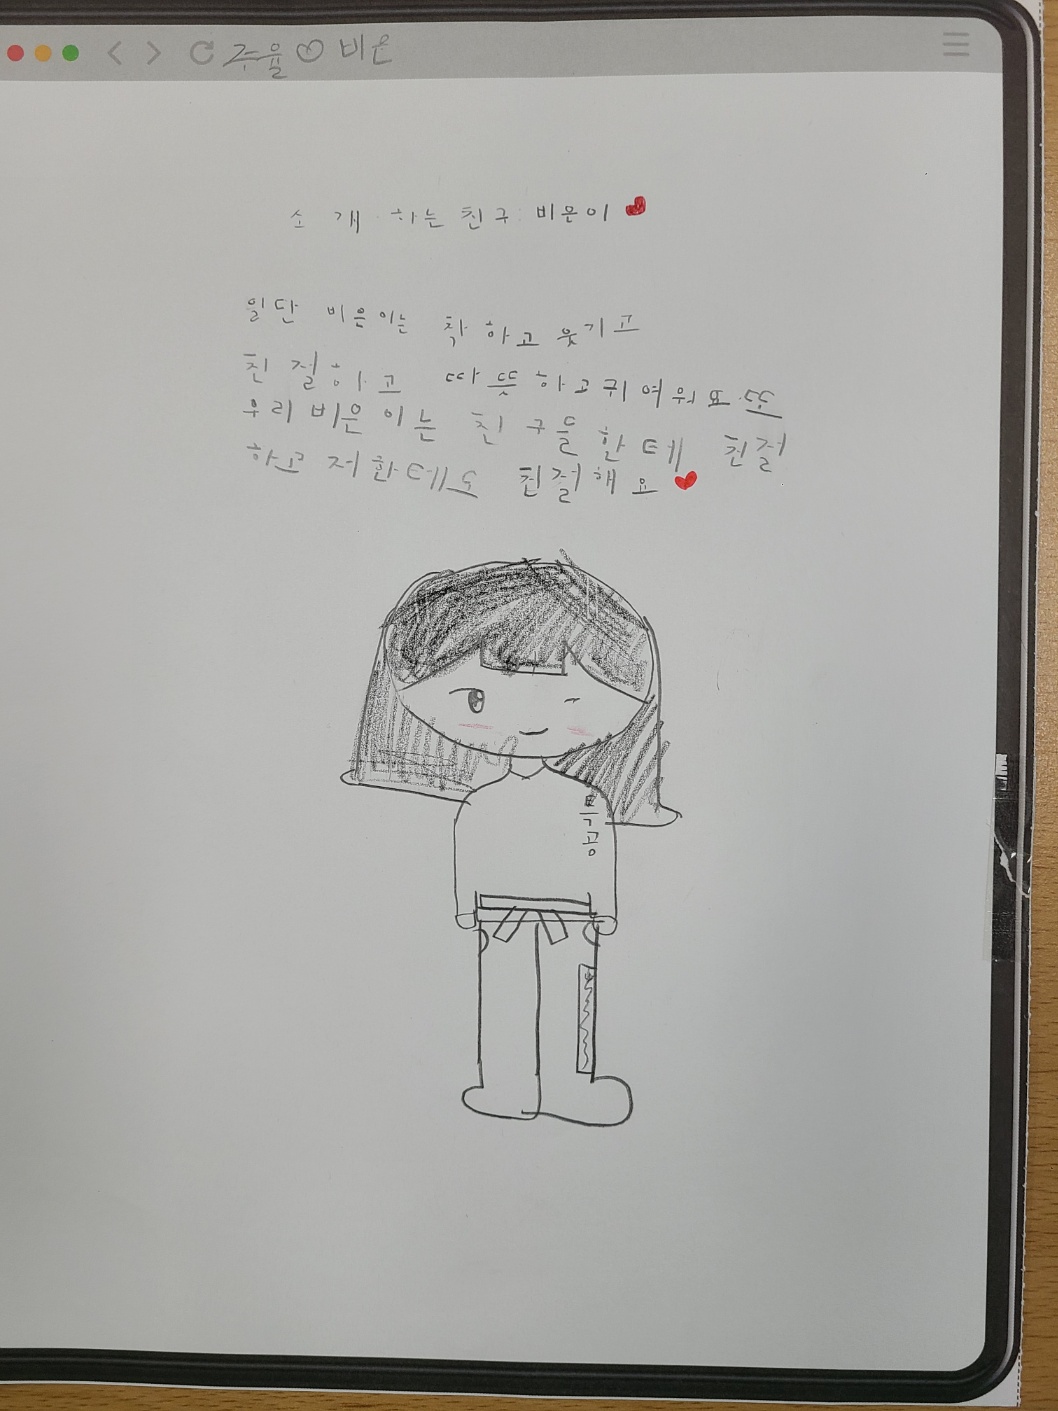 주율♡비은
소개하는친구:비은이♥
일단 비은이는 착하고 웃기고
친절하고 따뜻하고귀여워요.또
우리 비은이는 친구들한테 친절
하고 저한테도 친절해요♥
특공